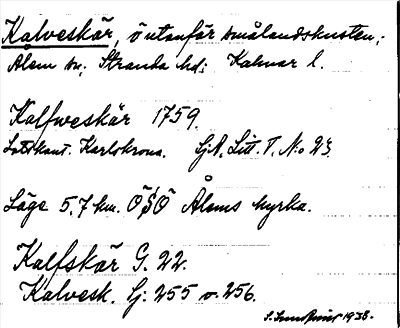 Kalveskär, ö utanför smålandskusten;
Ålem sn; Stranda hd; Kalmar l.
Kalfweskär 1759.
Lotskont. Karlskrona. SjA. Litt. T. No 23.
Läge 5,7 km. ÖSÖ Ålems kyrka.
Kalfskär G. 22.
Kalvesk. Sj: 255 o. 256.
1938.